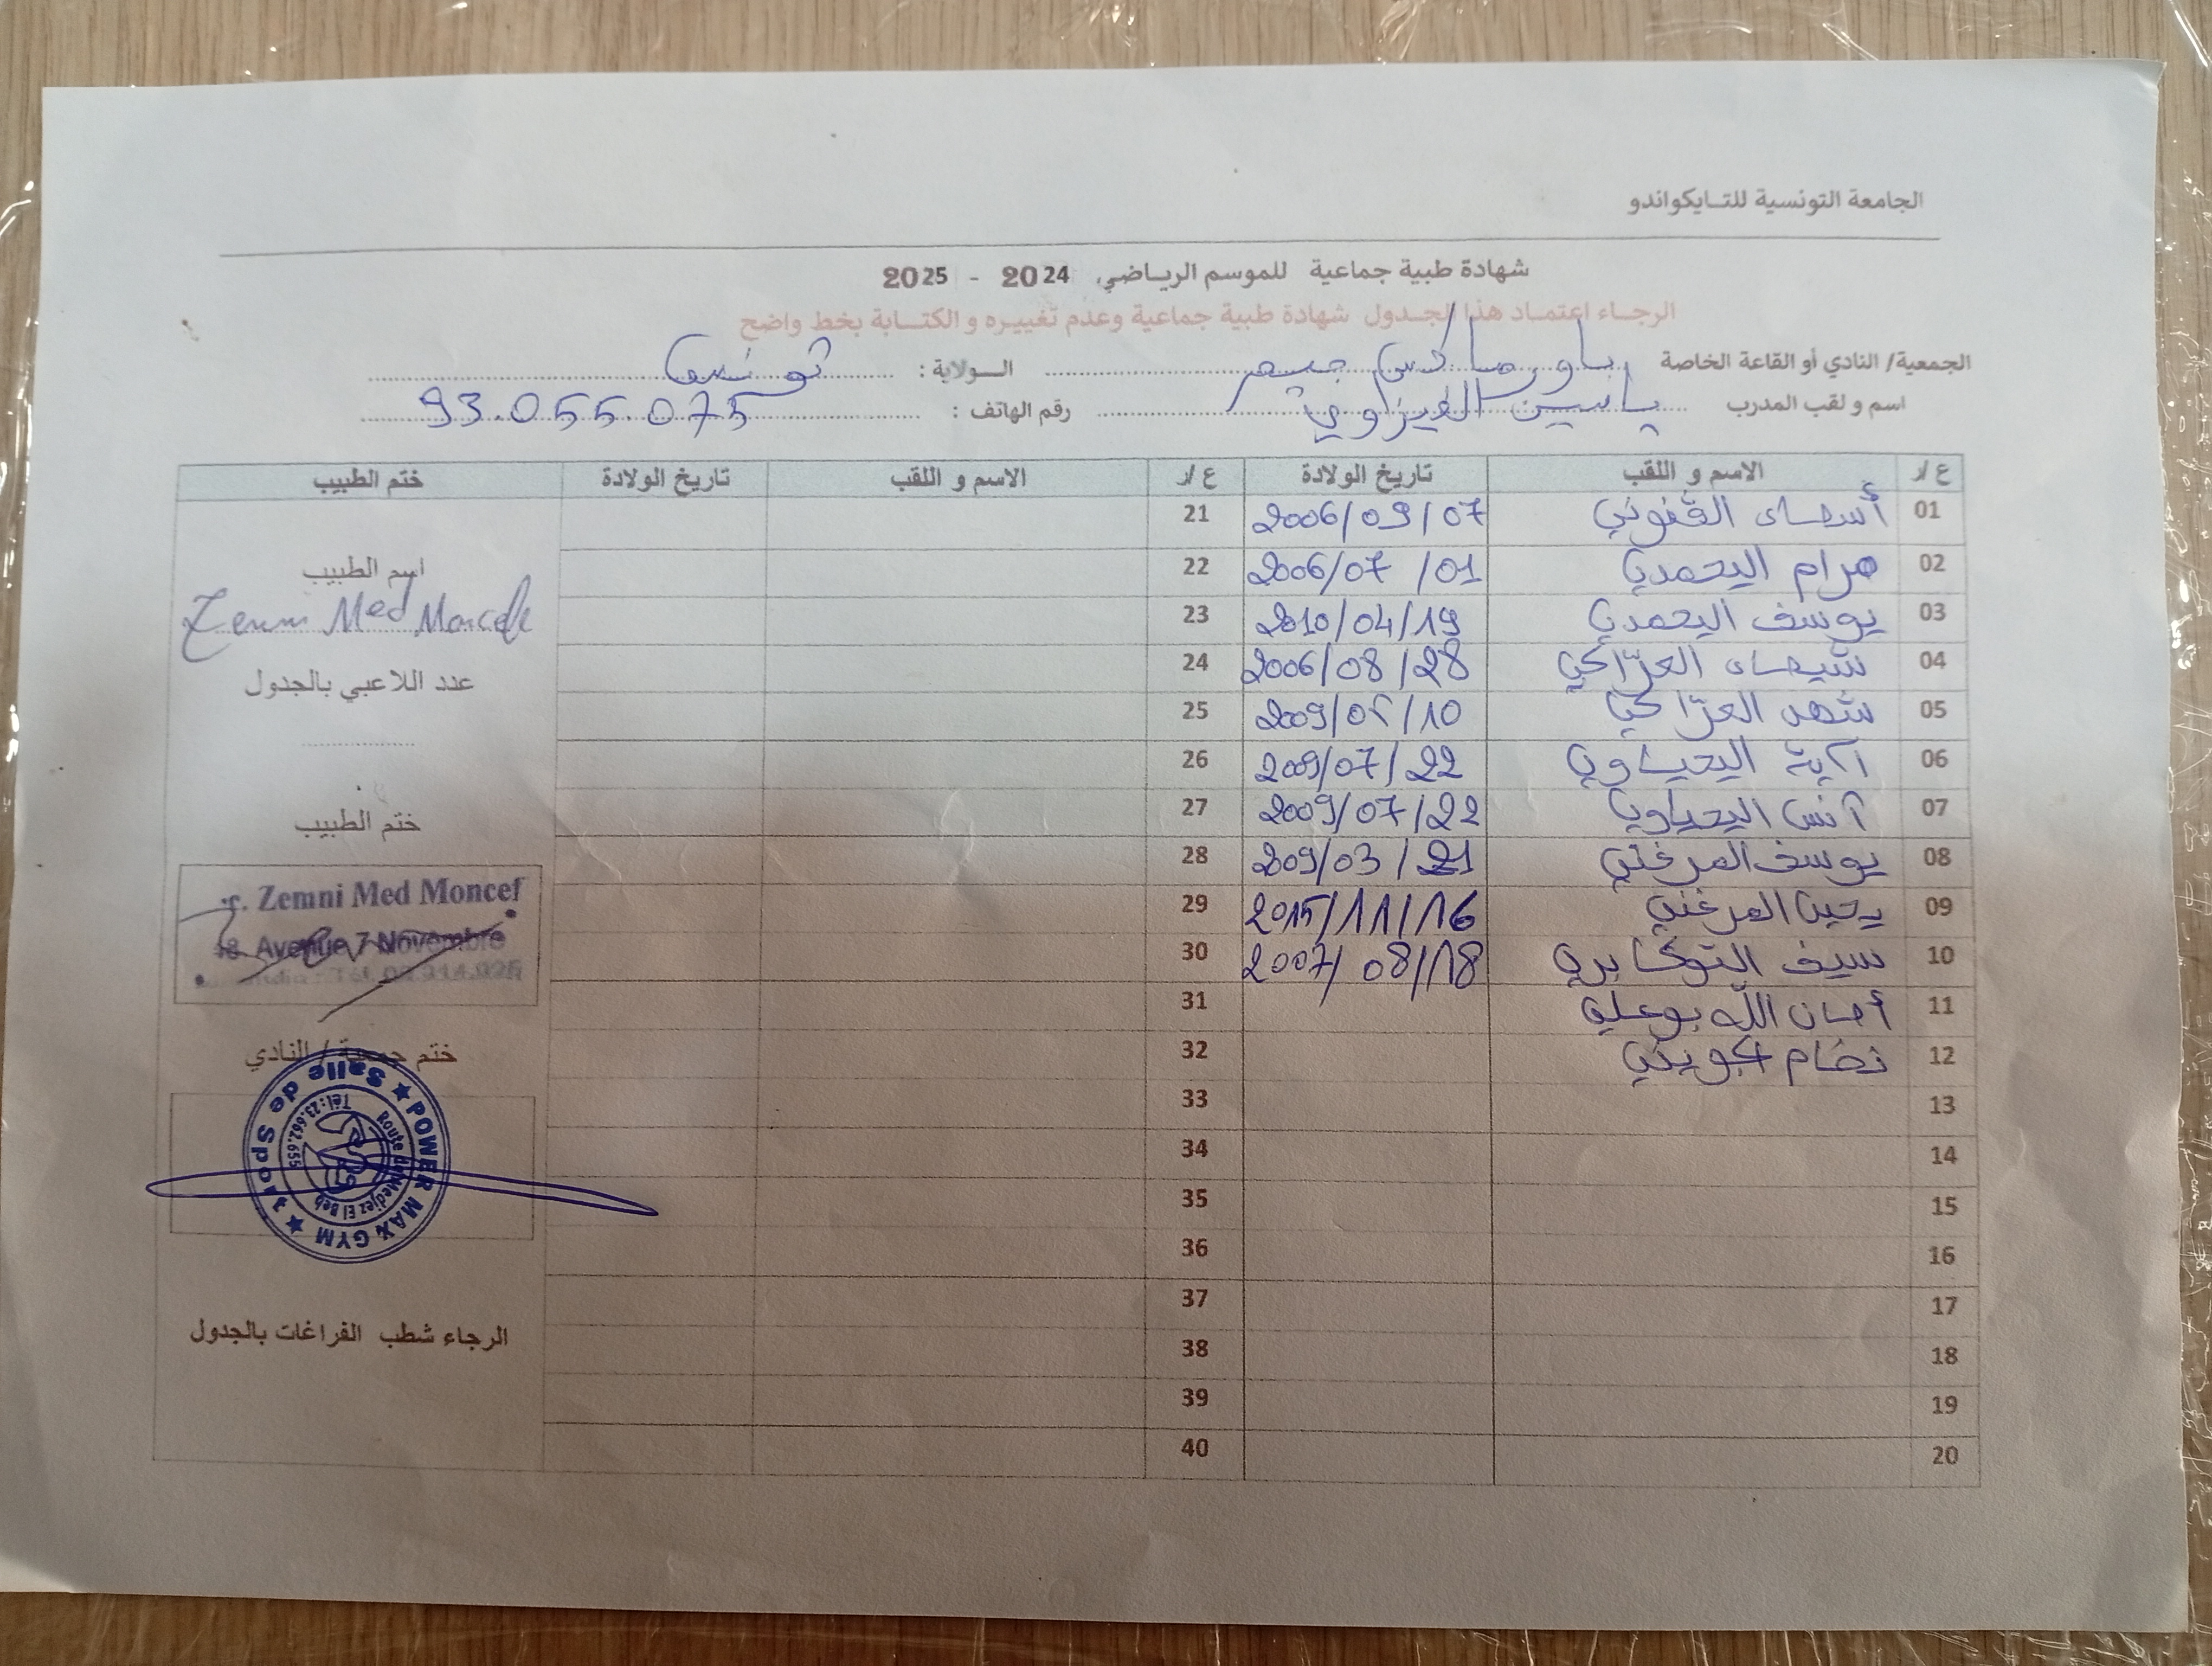 الجامعة التونسية للتـايكواندو
شهادة طبية جماعية للموسم الرياضي 2024 - 2025
الرجاء اعتماد هذا الجدول شهادة طبية جماعية وعدم تغييره و الكتابة بخط واضح
الجمعية/ النادي أو القاعة الخاصة باور ماكس جيم الولاية : تونس
اسم و لقب المدرب ياسين العيزاوي رقم الهاتف : 93.055.075
ع /ر الاسم و اللقب تاريخ الولادة ع /ر الاسم و اللقب تاريخ الولادة ختم الطبيب
01 أسماء 2006/09/07 21
02 مرام اليحمدي 2006/07/01 22
03 يوسف اليحمدي 2010/04/19 23
04 شيماء 2006/08/28 24
05 شهد 25
06 آية اليحياوي 2009/07/22 26
07 آنس اليحياوي 2009/07/22 27
08 يوسف المرغني 2009/03/21 28
09 يحيى المرغني 2015/11/16 29
10 سيف التوكابري 2007/08/18 30
11 أمان الله بوعلي 31
12 نضام الجويني 32
13 33
14 34
15 35
16 36
17 37
18 38
19 39
20 40
اسم الطبيب
Zemni Med Moncef
عدد اللاعبي بالجدول
ختم الطبيب
Zemni Med Moncef
Avenue 7 Novembre
ختم جمعية / النادي
POWER MAX GYM ★ Salle de Sport ★
Route de Medjez El Beb
Tél: 23.662.655
الرجاء شطب الفراغات بالجدول